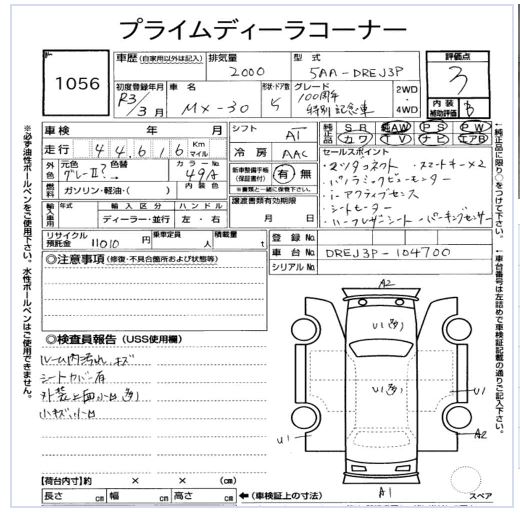 プライムディーラコーナー
1056
車歴 (自家用以外は記入)
排気量
2000
型式
5AA-DREJ3P
評価点
3
内装
補助評価 B
初度登録年月
R3/3月
車名
MX-30
形状・ドア数
5
グレード
100周年
特別記念車
2WD
4WD
車検 年 月
シフト
AT
純正品
SR 純AW PS PW
カワ TV ナビ エアB
走行 44,616 Km
マイル
冷房
AAC
セールスポイント
・マツダコネクト ・スマートキー×2
・パノラミックビューモニター
・i-アクティブセンス
・シートヒーター
・ハーフレザーシート ・パーキングセンサー
外色
元色
グレーⅡ?
色替
カラーNo.
49A
内装色
燃料
ガソリン・軽油・( )
新車整備手帳
(保証書付)
有・無
※書類と一緒に保管下さい。
譲渡書類有効期限
月 日
輸入車
年式
輸入区分
ディーラー・並行
ハンドル
左・右
リサイクル
預託金
11010 円
乗車定員
人
積載量
t
登録No.
車台No. DREJ3P-104700
シリアルNo.
◎注意事項 (修復・不具合箇所および状態等)
◎検査員報告 (USS使用欄)
ルーム内汚れ、キズ
シートカバー有
小キズ、小凹
【荷台内寸】約 × × (cm)
長さ cm 幅 cm 高さ cm
←(車検証上の寸法)
スペア
A2
U1
U1
U1
U1
A2
A1
※必ず油性ボールペンをご使用下さい。水性ボールペンはご使用できません。
←純正品に限り○をつけて下さい。
←車台番号は左詰めで車検証記載の通りご記入下さい。